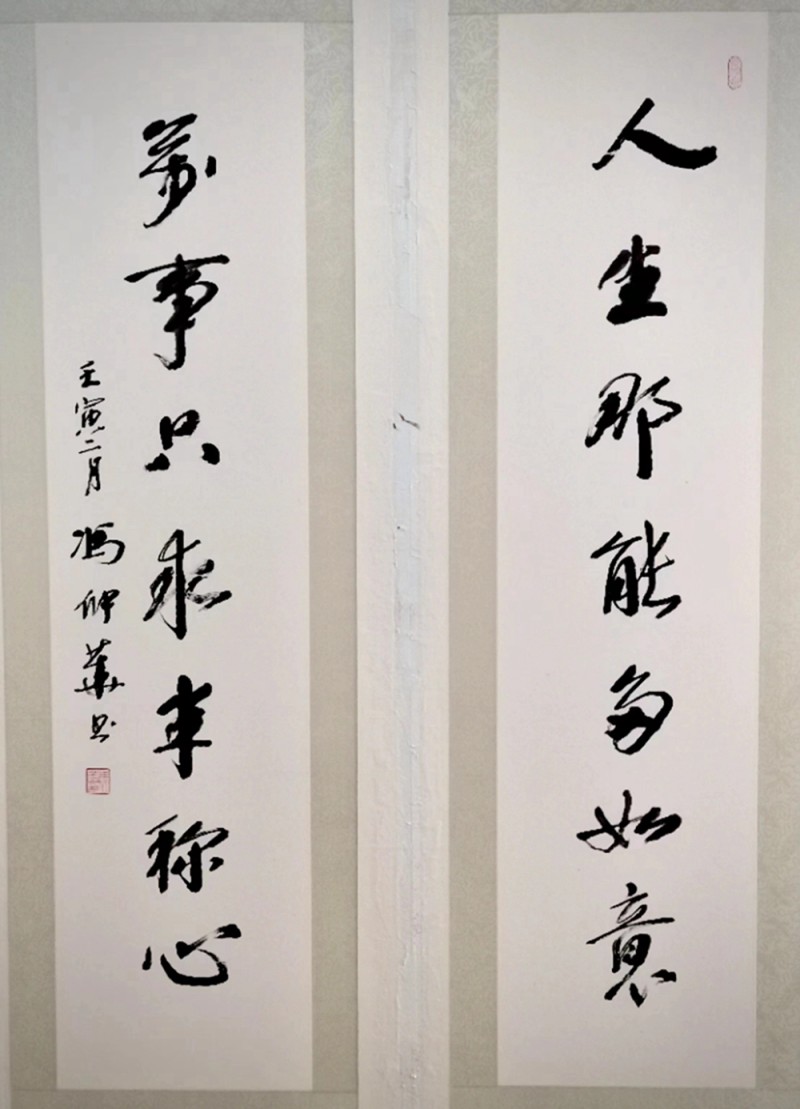 人生那能多如意
萬事只求半称心
壬寅二月 馮仲華书